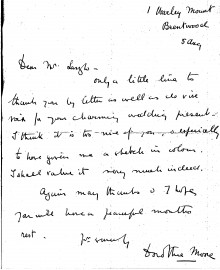 1 Warley Mount
Brentwood
5 Aug
Dear Mr.
only a little line to
thank you by letter as well as
for your charming wedding present.
I think it is too nice of you, & especially
to have given me a sketch in colour.
I shall value it very much indeed.
Again many thanks & I hope
you will have a peaceful months
rest.
Yrs sincerely
Dorothea Moore